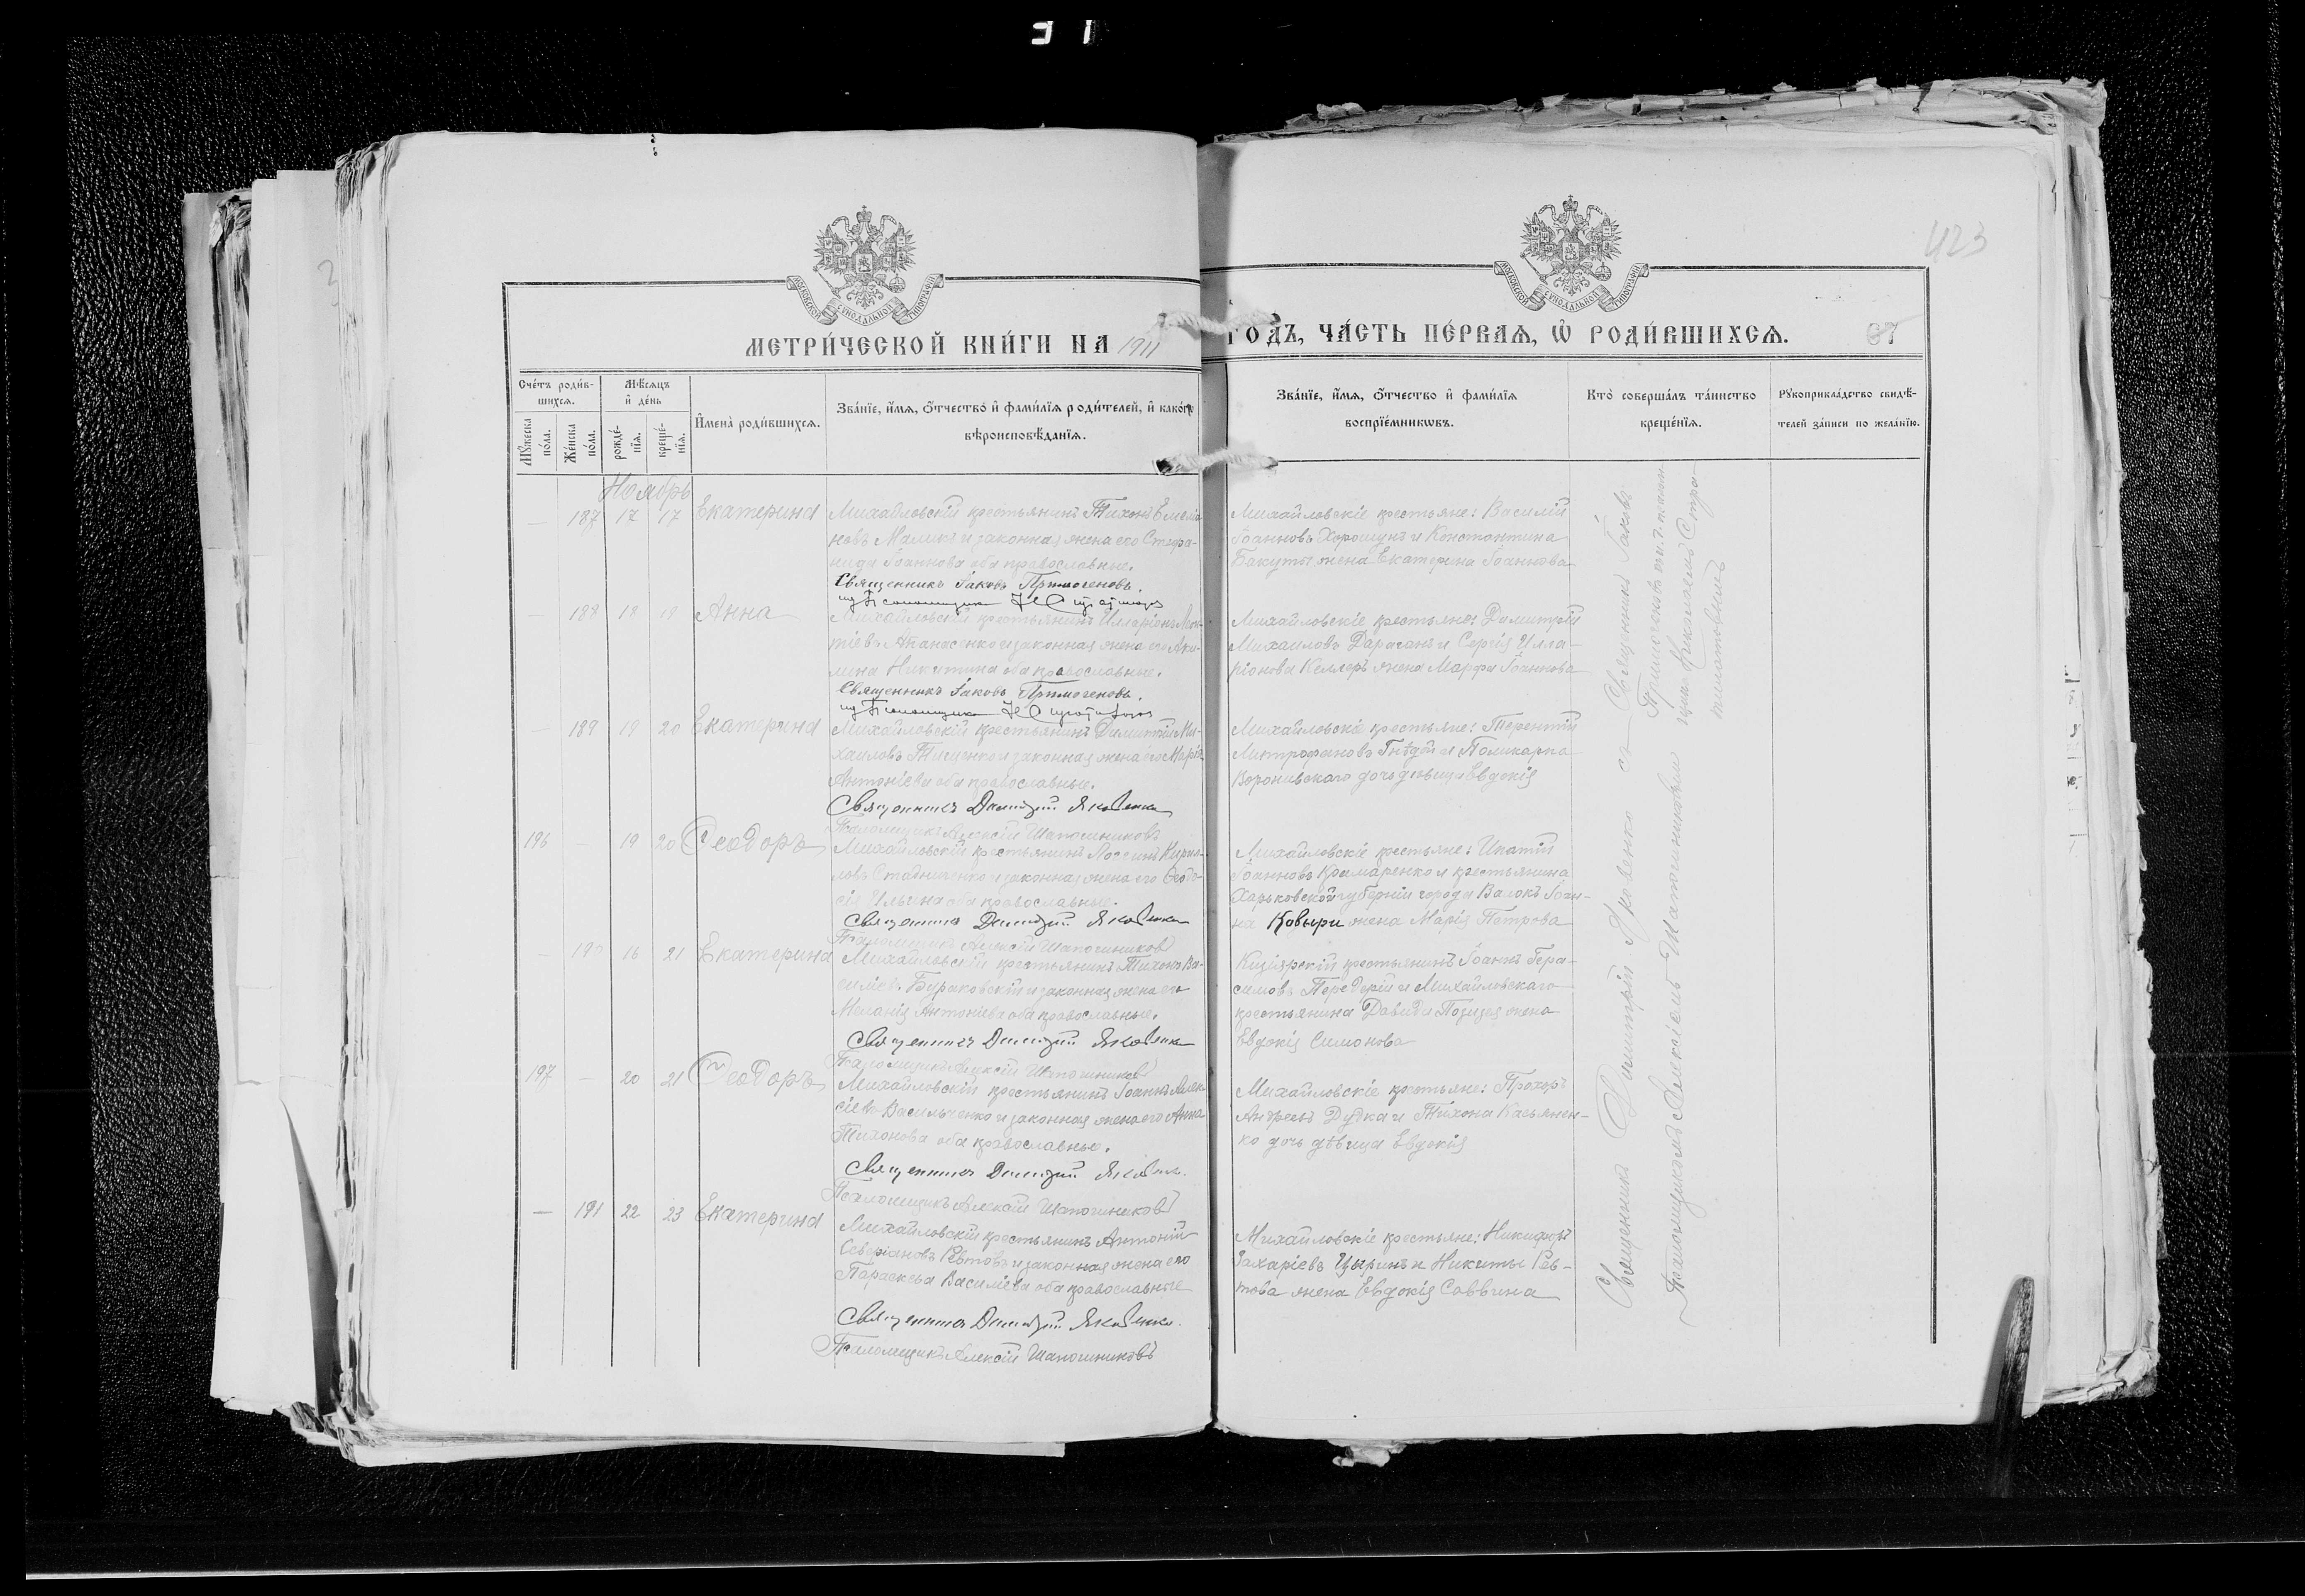 423
МЕТРИ́ЧЕСКОЙ КНИ́ГИ НА 1911
ГОДЪ, ЧА́СТЬ ПЕ́РВАЯ, Ѡ РОДИ́ВШИХСЯ.
67
Сче́тъ роди́в-
шихся.
Мѣ́сяцъ
и де́нь
Му́жеска
по́ла.
Же́нска
по́ла.
рожде́-
нія.
креще́-
нія.
Имена̀ роди́вшихся.
Зва́нїе, и́мя, о́тчество и фами́лїя роди́телей, и како́гѡ
вѣроисповѣ́данїя.
Зва́нїе, и́мя, о́тчество и фами́лїя
воспрїе́мникѡвъ.
Кто̀ соверша́лъ та́инство
креще́нїя.
Рукоприкла́дство свидѣ́-
телей за́писи по жела́нїю.
Ноябрь
— 187 17 17 Екатерина
Михайловскій крестьянинъ Тихонъ Емелiа-
новъ Маликъ и законная жена его Стефа-
нида Іоаннова оба православные.
Священникъ Іаковъ Примогеновъ.
Михайловскіе крестьяне: Василій
Іоанновъ Хорошунъ и Константина
Бакуты жена Екатерина Іоаннова
— 18 18 Анна
Михайловскій крестьянинъ Илларіонъ
тіевъ Апанасенко и законная жена его Аки-
лина Никитина оба православные.
Священникъ Іаковъ Примогеновъ.
Михайловскіе крестьяне: Димитрій
Михаиловъ Дараганъ и Сергія Илла-
ріонова Келлеръ жена Марфа Іоаннова
— 189 19 20 Екатерина
Михайловскій крестьянинъ Димитрій Ми-
хаиловъ Тищенко и законная жена его Марія
Антоніева оба православные.
Священникъ Димитрій Яковенко
Псаломщикъ Алексій Шапошниковъ
Михайловскіе крестьяне: Терентій
Митрофановъ Гнѣдой и Поликарпа
Воронивскаго дочь дѣвица Евдокія
196 — 19 20 Ѳеодоръ
Михайловскій крестьянинъ Логгинъ Кирил-
ловъ Стадниченко и законная жена его Ѳеодо-
сія Ильина оба православные.
Священникъ Димитрій Яковенко
Псаломщикъ Алексій Шапошниковъ
Михайловскіе крестьяне: Ипатій
Іоанновъ Крамаренко и крестьянина
Харьковской губерніи города Валокъ Іоан-
на Ковыри жена Марія Петрова
— 190 16 21 Екатерина
Михайловскій крестьянинъ Тихонъ Ва-
силіевъ Бураковскій и законная жена его
Меланія Антоніева оба православные.
Священникъ Димитрій Яковенко
Псаломщикъ Алексій Шапошниковъ
Кизіярскій крестьянинъ Іоаннъ Гера-
симовъ Передерій и Михайловскаго
крестьянина Давида жена
Евдокія Симонова
197 — 20 21 Ѳеодоръ
Михайловскій крестьянинъ Іоаннъ Алек-
сіевъ Васильченко и законная жена его Анна
Тихонова оба православные.
Священникъ Димитрій Яковенко.
Псаломщикъ Алексій Шапошниковъ
Михайловскіе крестьяне: Прохоръ
Андреевъ Дудка и Тихона Касьянен-
ко дочь дѣвица Евдокія
— 191 22 23 Екатерина
Михайловскій крестьянинъ Антоній
Северіановъ Ревтовъ и законная жена его
Параскева Василіева оба православные
Священникъ Димитрій Яковенко.
Псаломщикъ Алексій Шапошниковъ
Михайловскіе крестьяне: Никифоръ
Захаріевъ Цыринъ и Никиты Рев-
това жена Евдокія Саввина
Священникъ Димитрій Яковенко съ
Псаломщикомъ Алексіемъ Шапошниковымъ
Священникъ Іаковъ
Примогеновъ